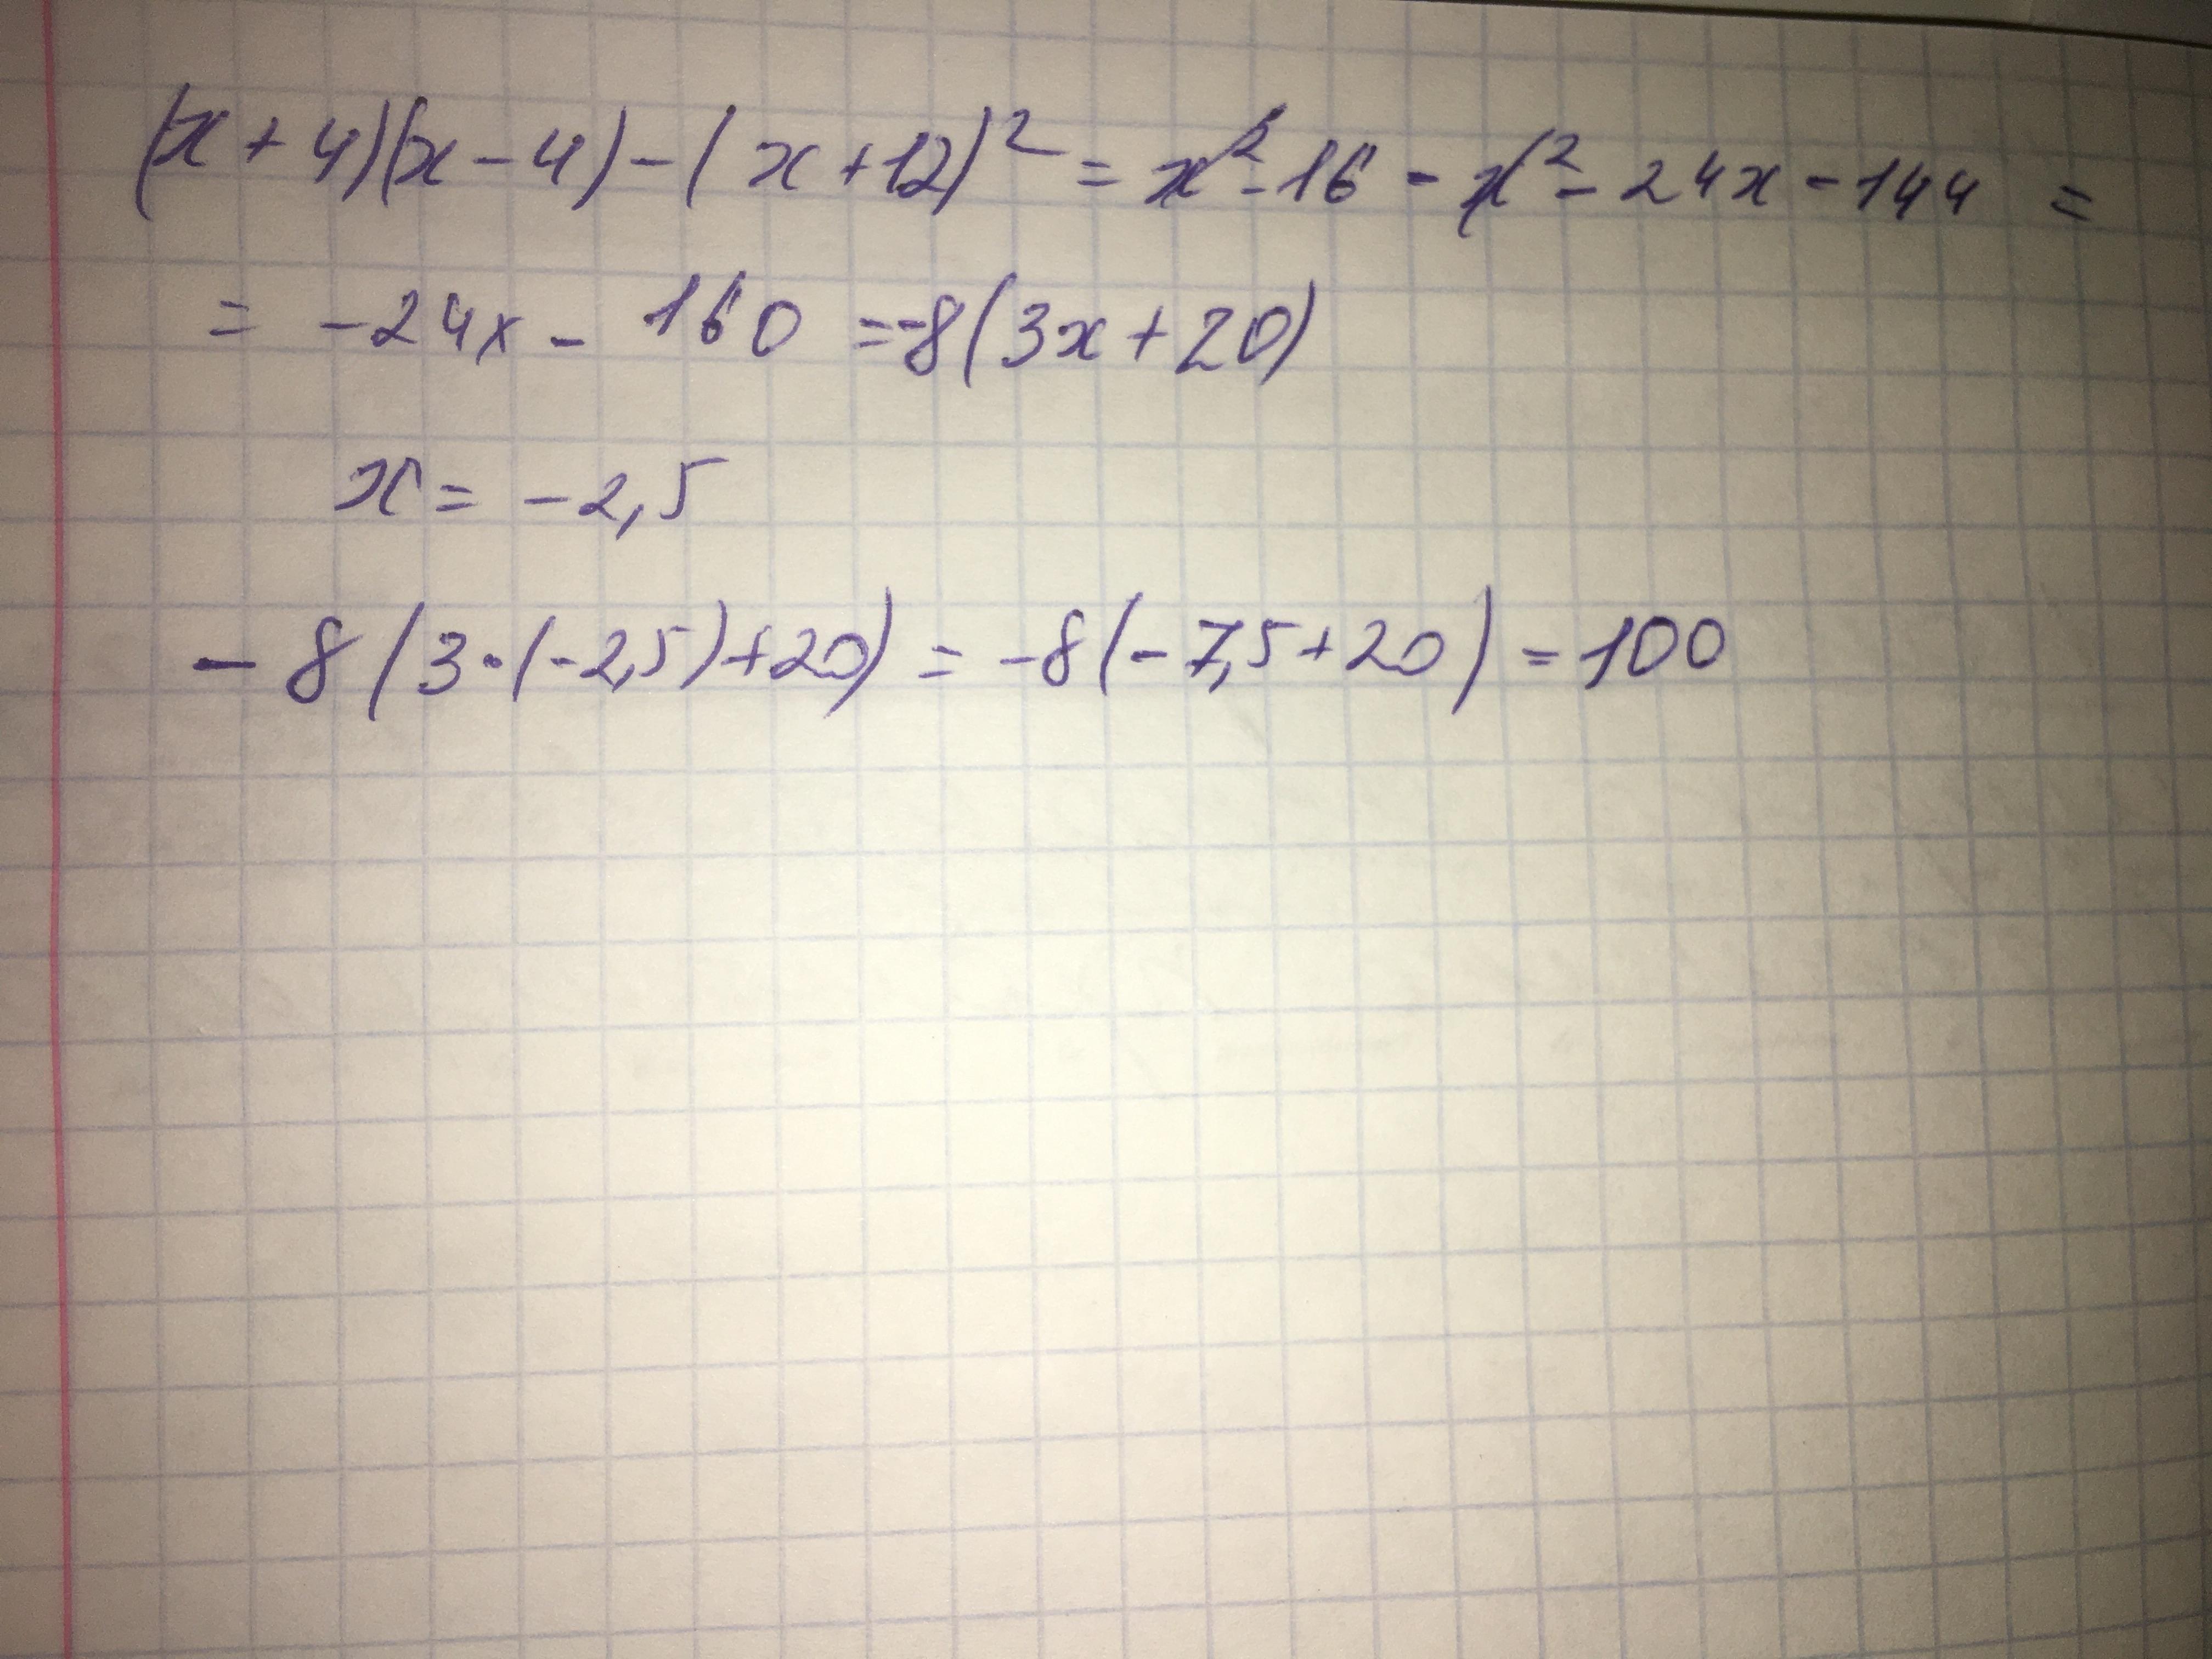 (x + 4)(x - 4) - (x + 12)² = x² - 16 - x² - 24x - 144 =
= - 24x - 160 = -8(3x + 20)
x = - 2,5
- 8 (3 · (-2,5) + 20) = -8 (- 7,5 + 20) = 100